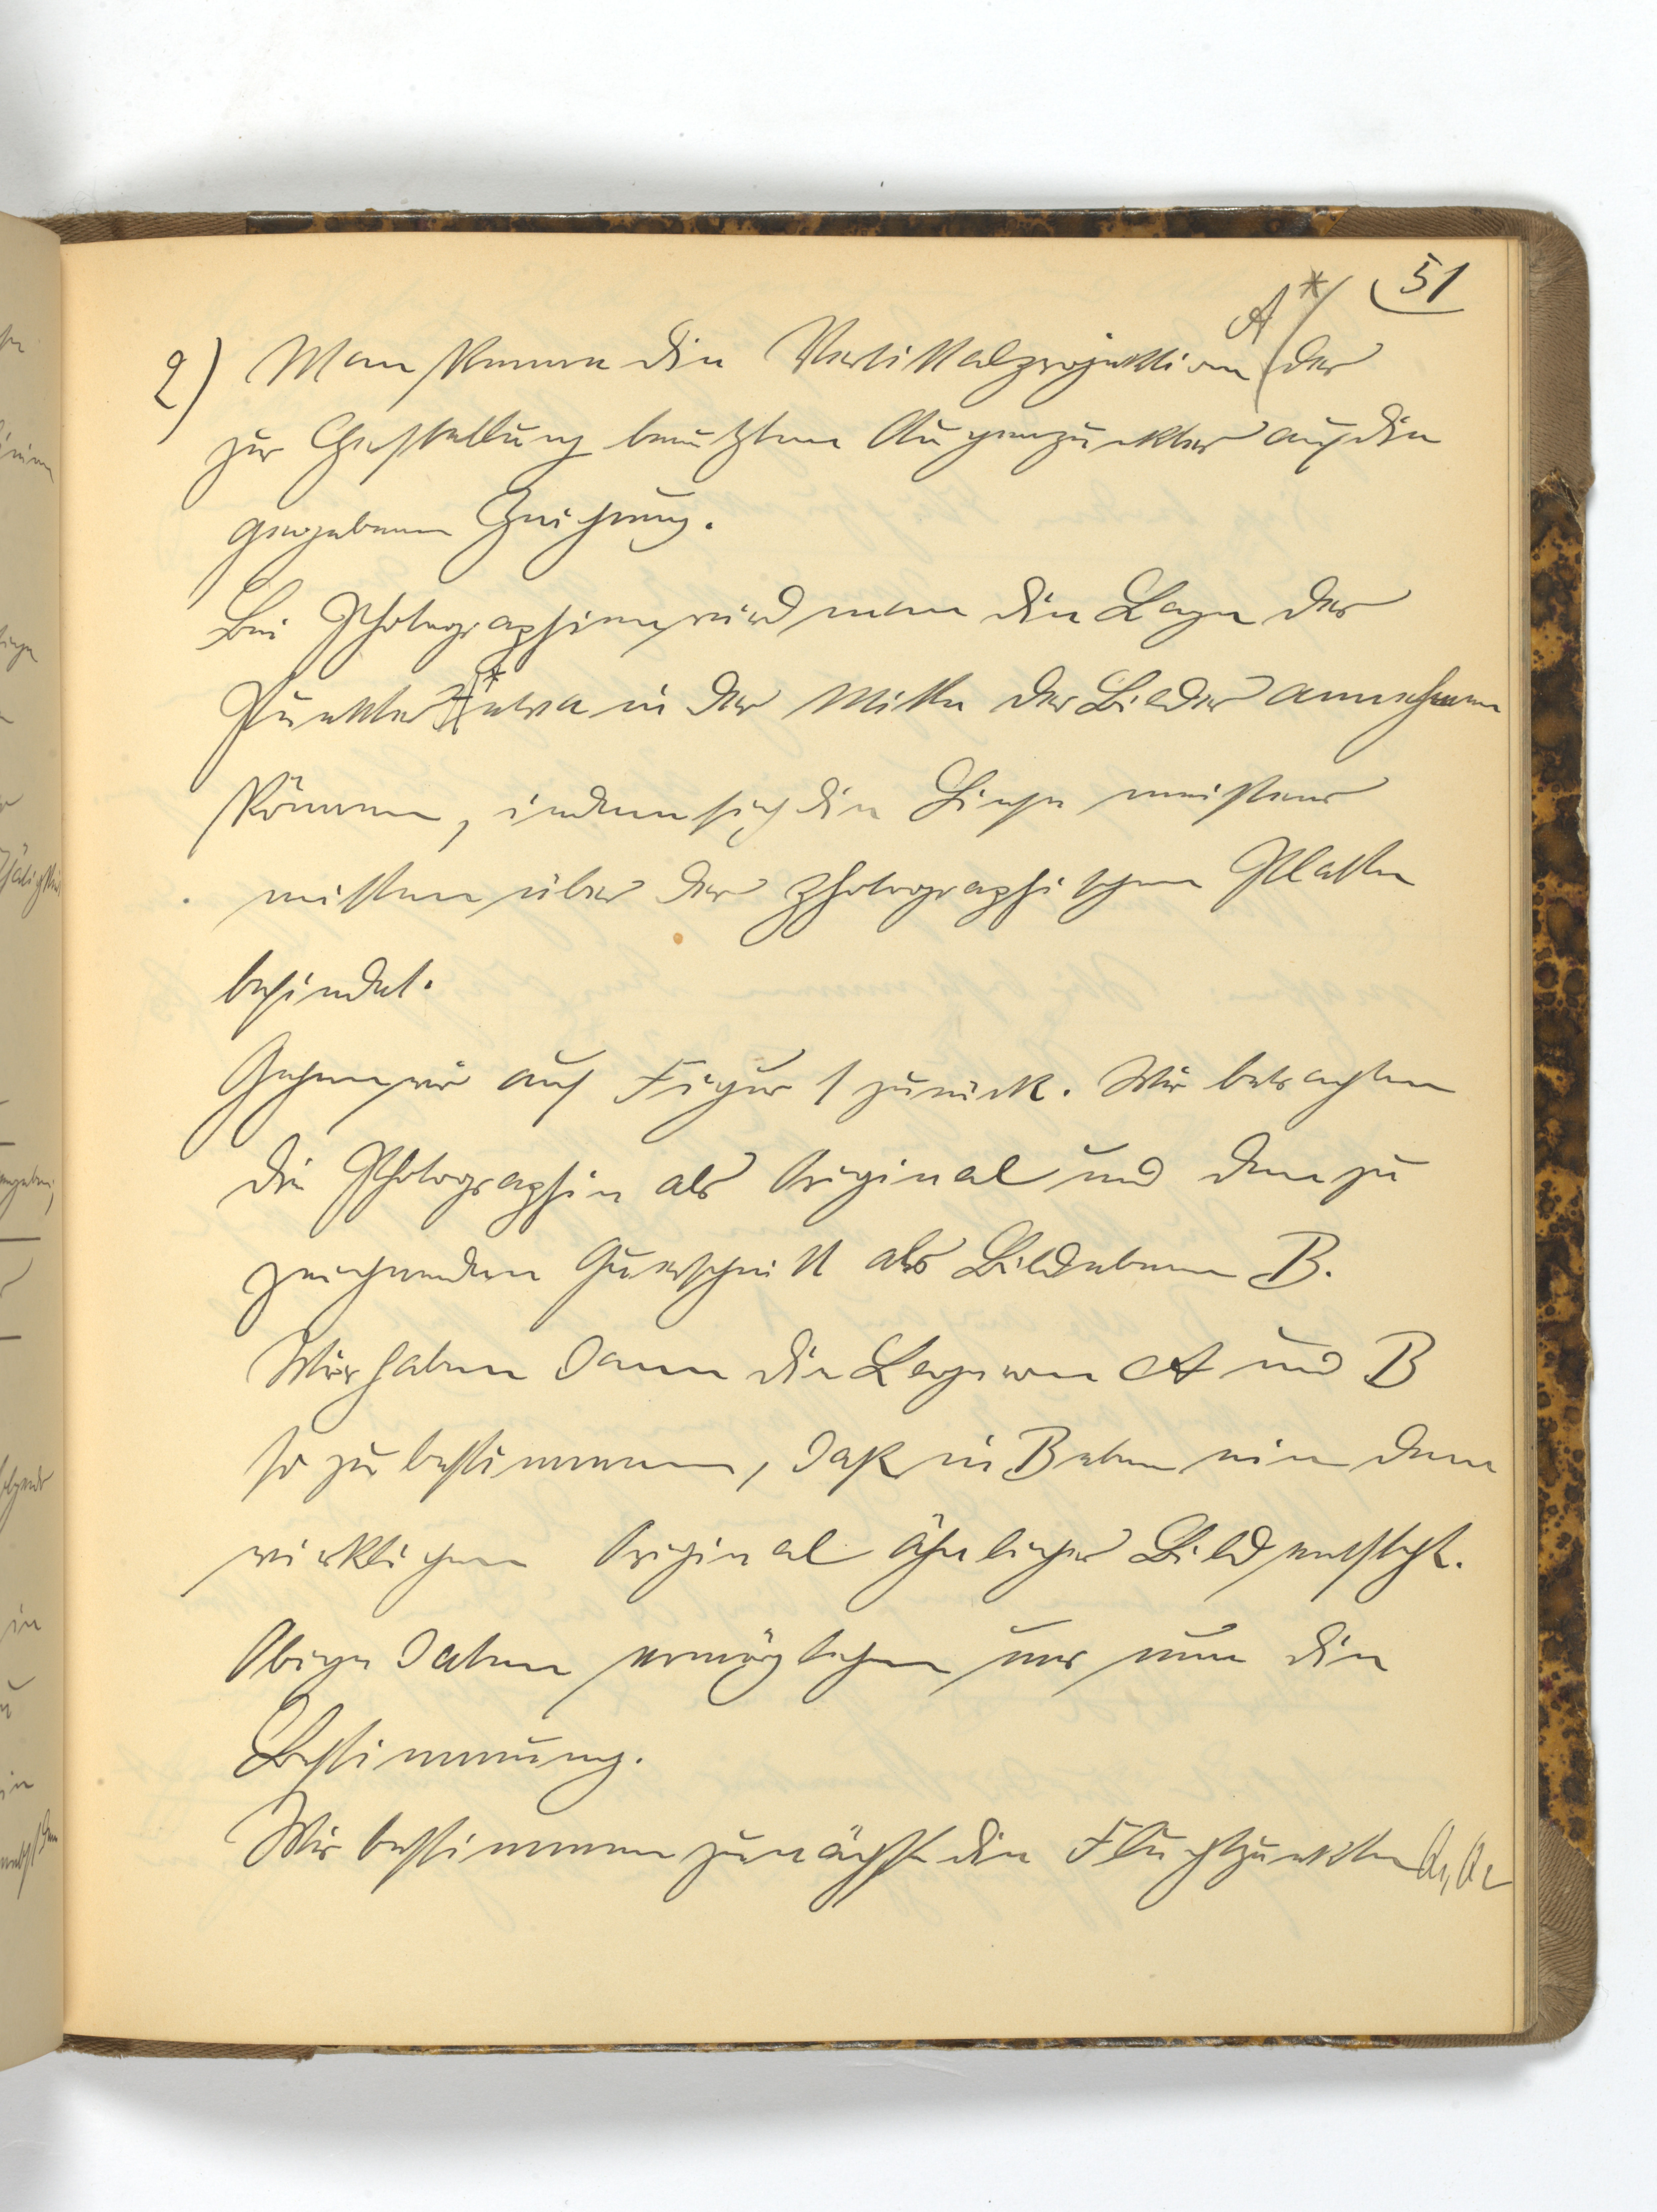 51
2) Man kenne die Vertikalprojektion A* der
zur Herstellung benutzten Augenpunktes auf die
gegebenen Zeichnung.
Bei Photographien wird man die Lage des
Punktes A* etwa in der Mitte des Bildes annehmen
können, indem sich die Linse meistens
mitten über der photographischen Platte
befindet.
Gehen wir auf Figur 1 zurück. Wir betrachten
die Photographie als Original und den zu
zeichnenden Querschnitt als Bildebene B.
Wir haben dann die Lage von A und B
so zu bestimmen, daß in B eben ein dem
wirklichen Original ähnliches Bild entsteht.
Obige Daten ermöglichen uns nun die
Bestimmung.
Wir bestimmen zunächst die Fluchtpunkte